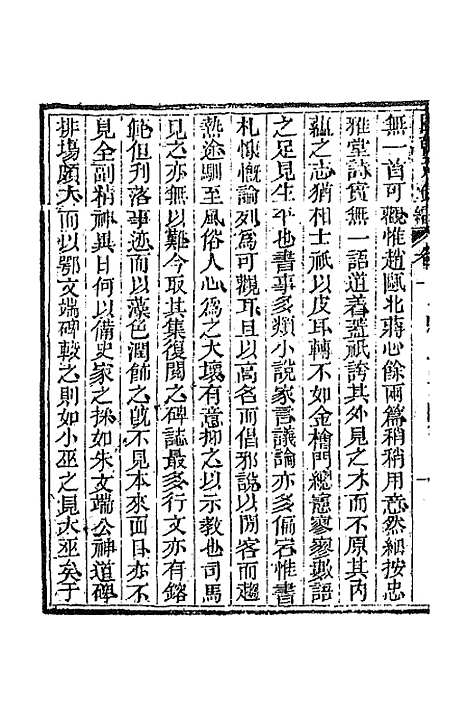 無一首可觀惟趙甌北蔣心餘兩篇稍稍用意然細按忠
雅堂詩實無一語道着蓋祇誇其外見之才而不原其內
蘊之志猶相士祇以皮耳轉不如金檜門總憲寥寥數語
之足見生平也書事多類小說家言議論亦多偏宕惟書
札慷慨論列爲可觀耳且以高名而倡邪說以閒客而趨
熱途馴至風俗人心爲之大壞有意抑之以示教也司馬
見之亦無以難今取其集復閱之碑誌最多行文亦有鎔
範但刋落事迹而以藻色潤飾之旣不見本來面目亦不
見全副精神異日何以備史家之採如朱文端公神道碑
排場頗大而以鄂文端碑較之則如小巫之見大巫矣于